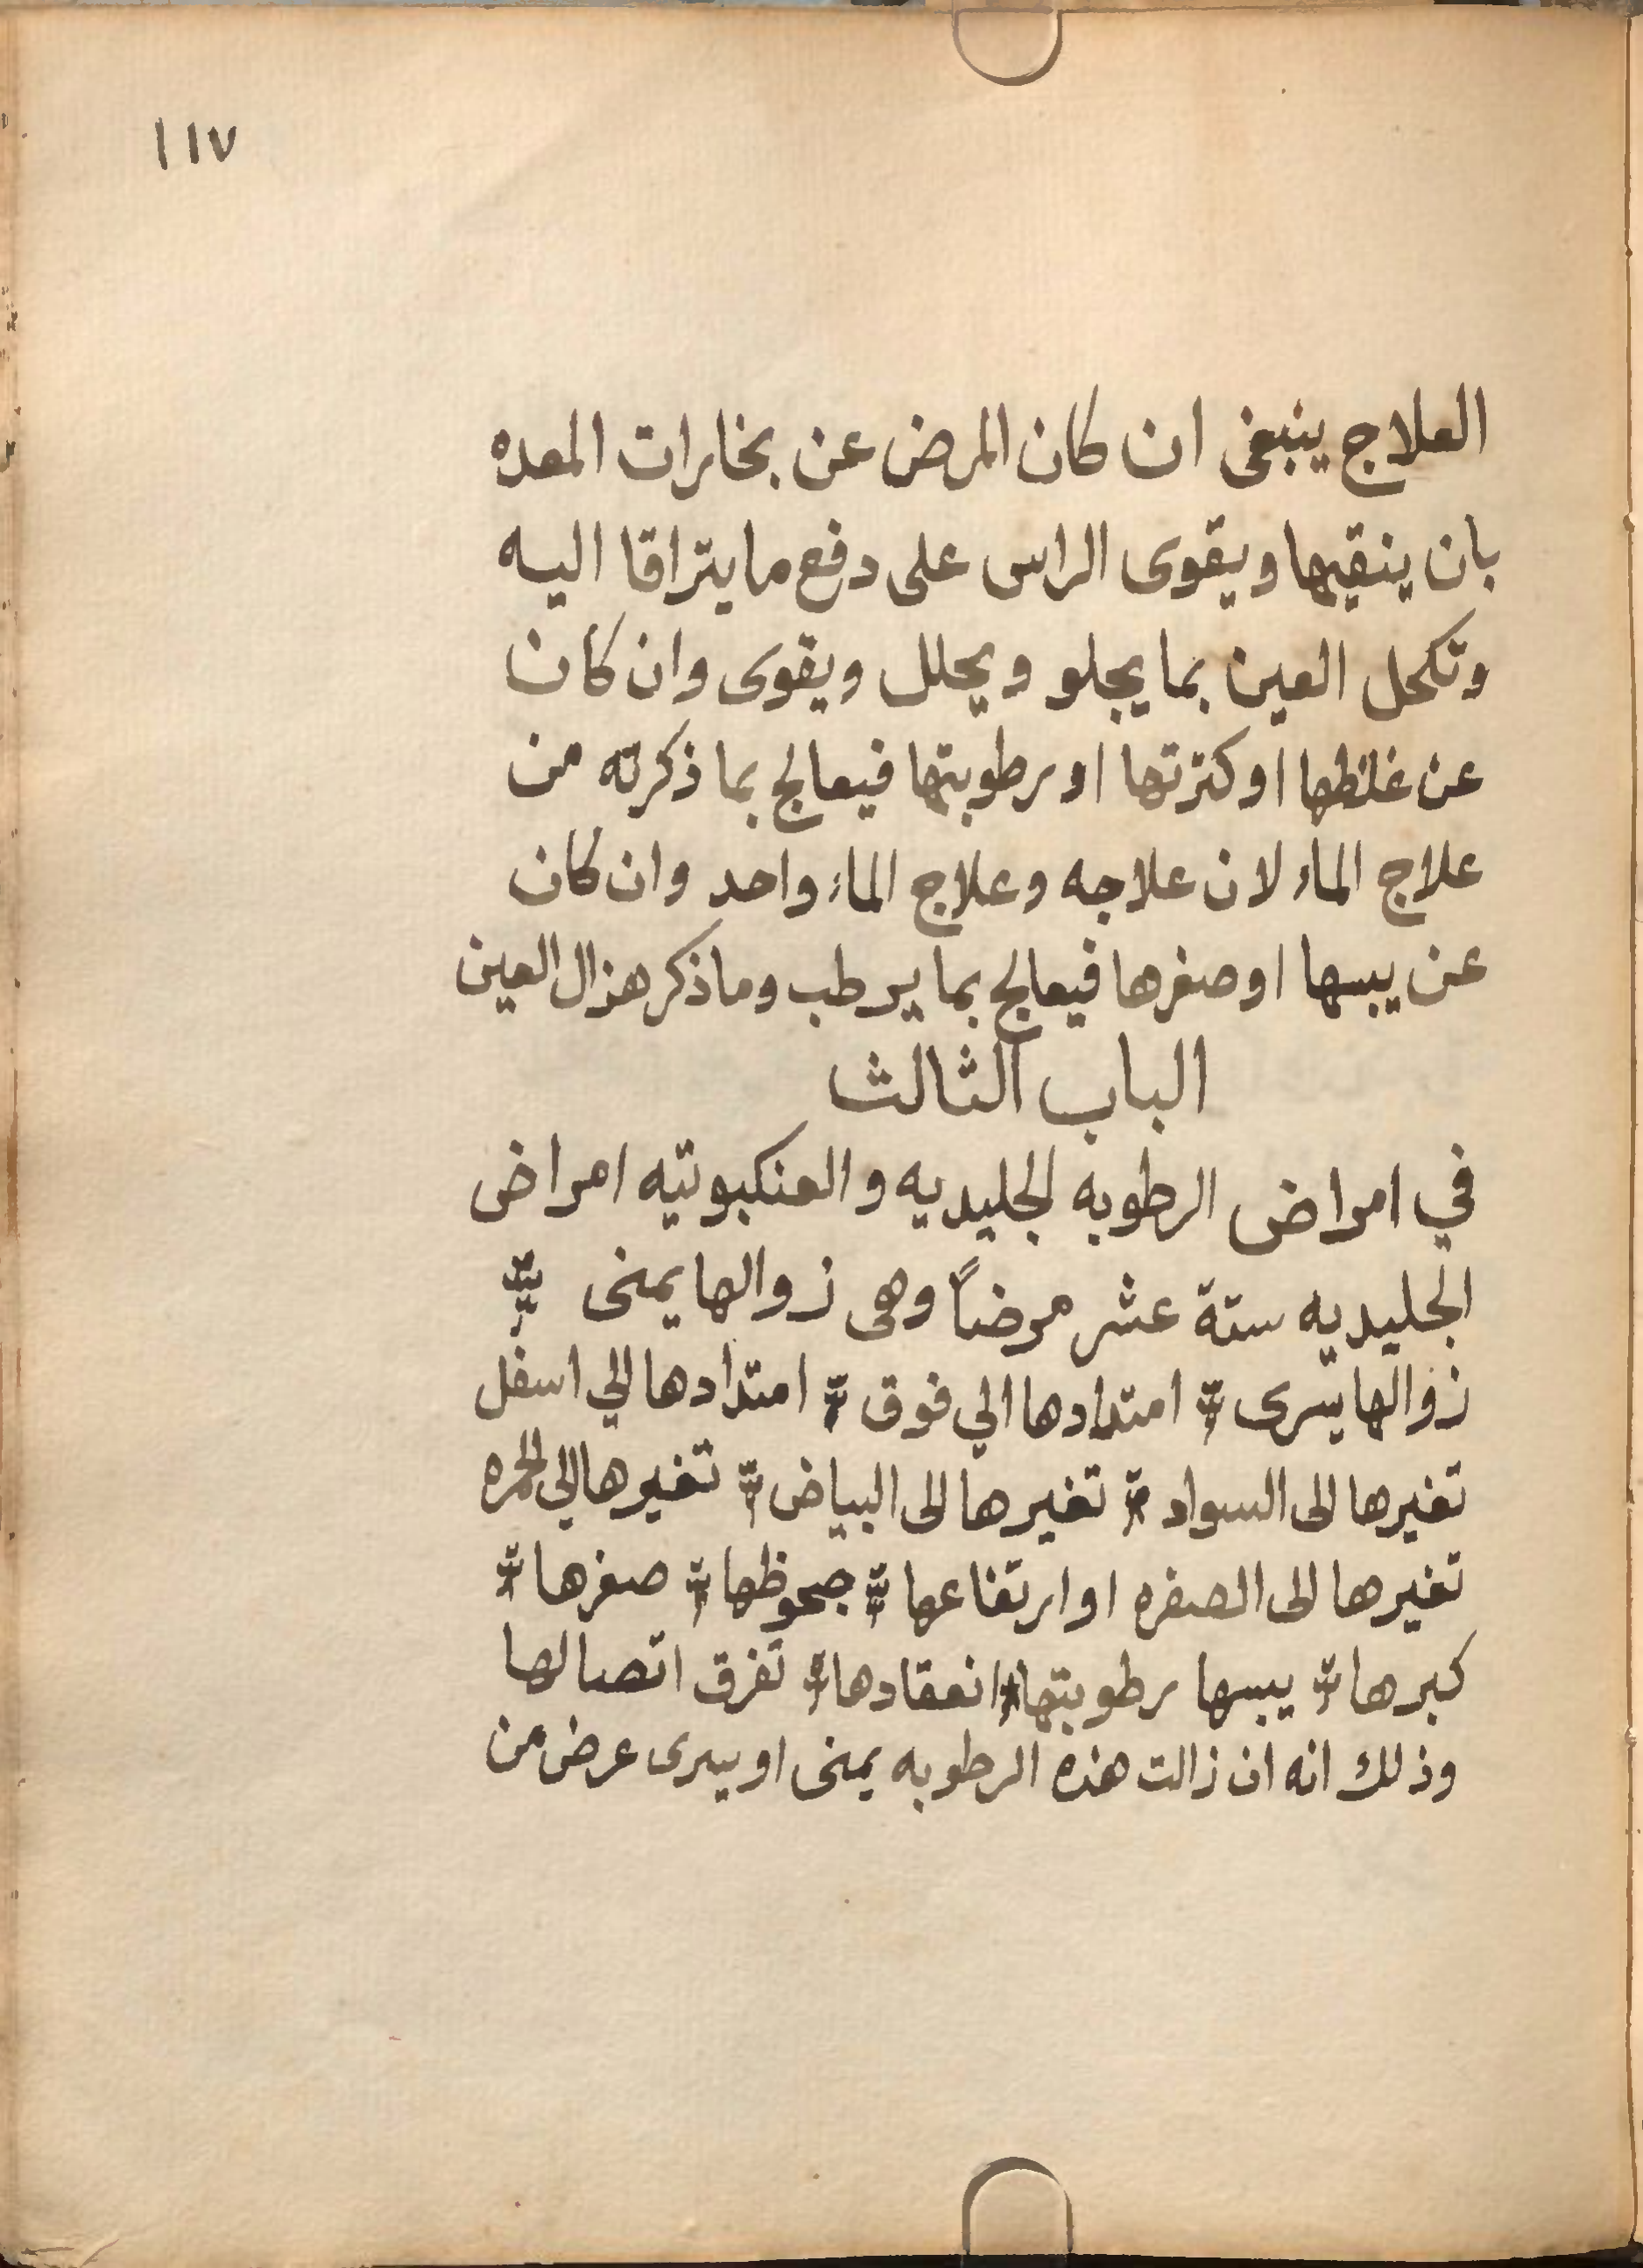 ١١٧
العلاج ينبغى ان كان المرض عن بخارات المعده
بان ينقيها ويقوى الراس على دفع ما يتراقا اليه
وتكحل العين بما يجلو ويحلل ويقوى وان كان
عن غلظها او كثرتها او رطوبتها فيعالج بما ذكرته من
علاج الماء لان علاجه وعلاج الماء واحد وان كان
عن يبسها او صغرها فيعالج بما يرطب وما ذكر هزال العين
الباب الثالث
في امراض الرطوبه الجليديه والعنكبوتيه امراض
الجليديه ستة عشر مرضاً وهى زوالها يمنى
زوالها يسرى امتدادها الي فوق امتدادها الي اسفل
تغيرها الى السواد تغيرها الى البياض تغيرها الي الحمره
تغيرها الى الصفره او ارتفاعها جحوظها صغرها
كبرها يبسها رطوبتها انعقادها تفرق اتصالها
وذلك انه ان زالت هذه الرطوبه يمنى او يسرى عرض من